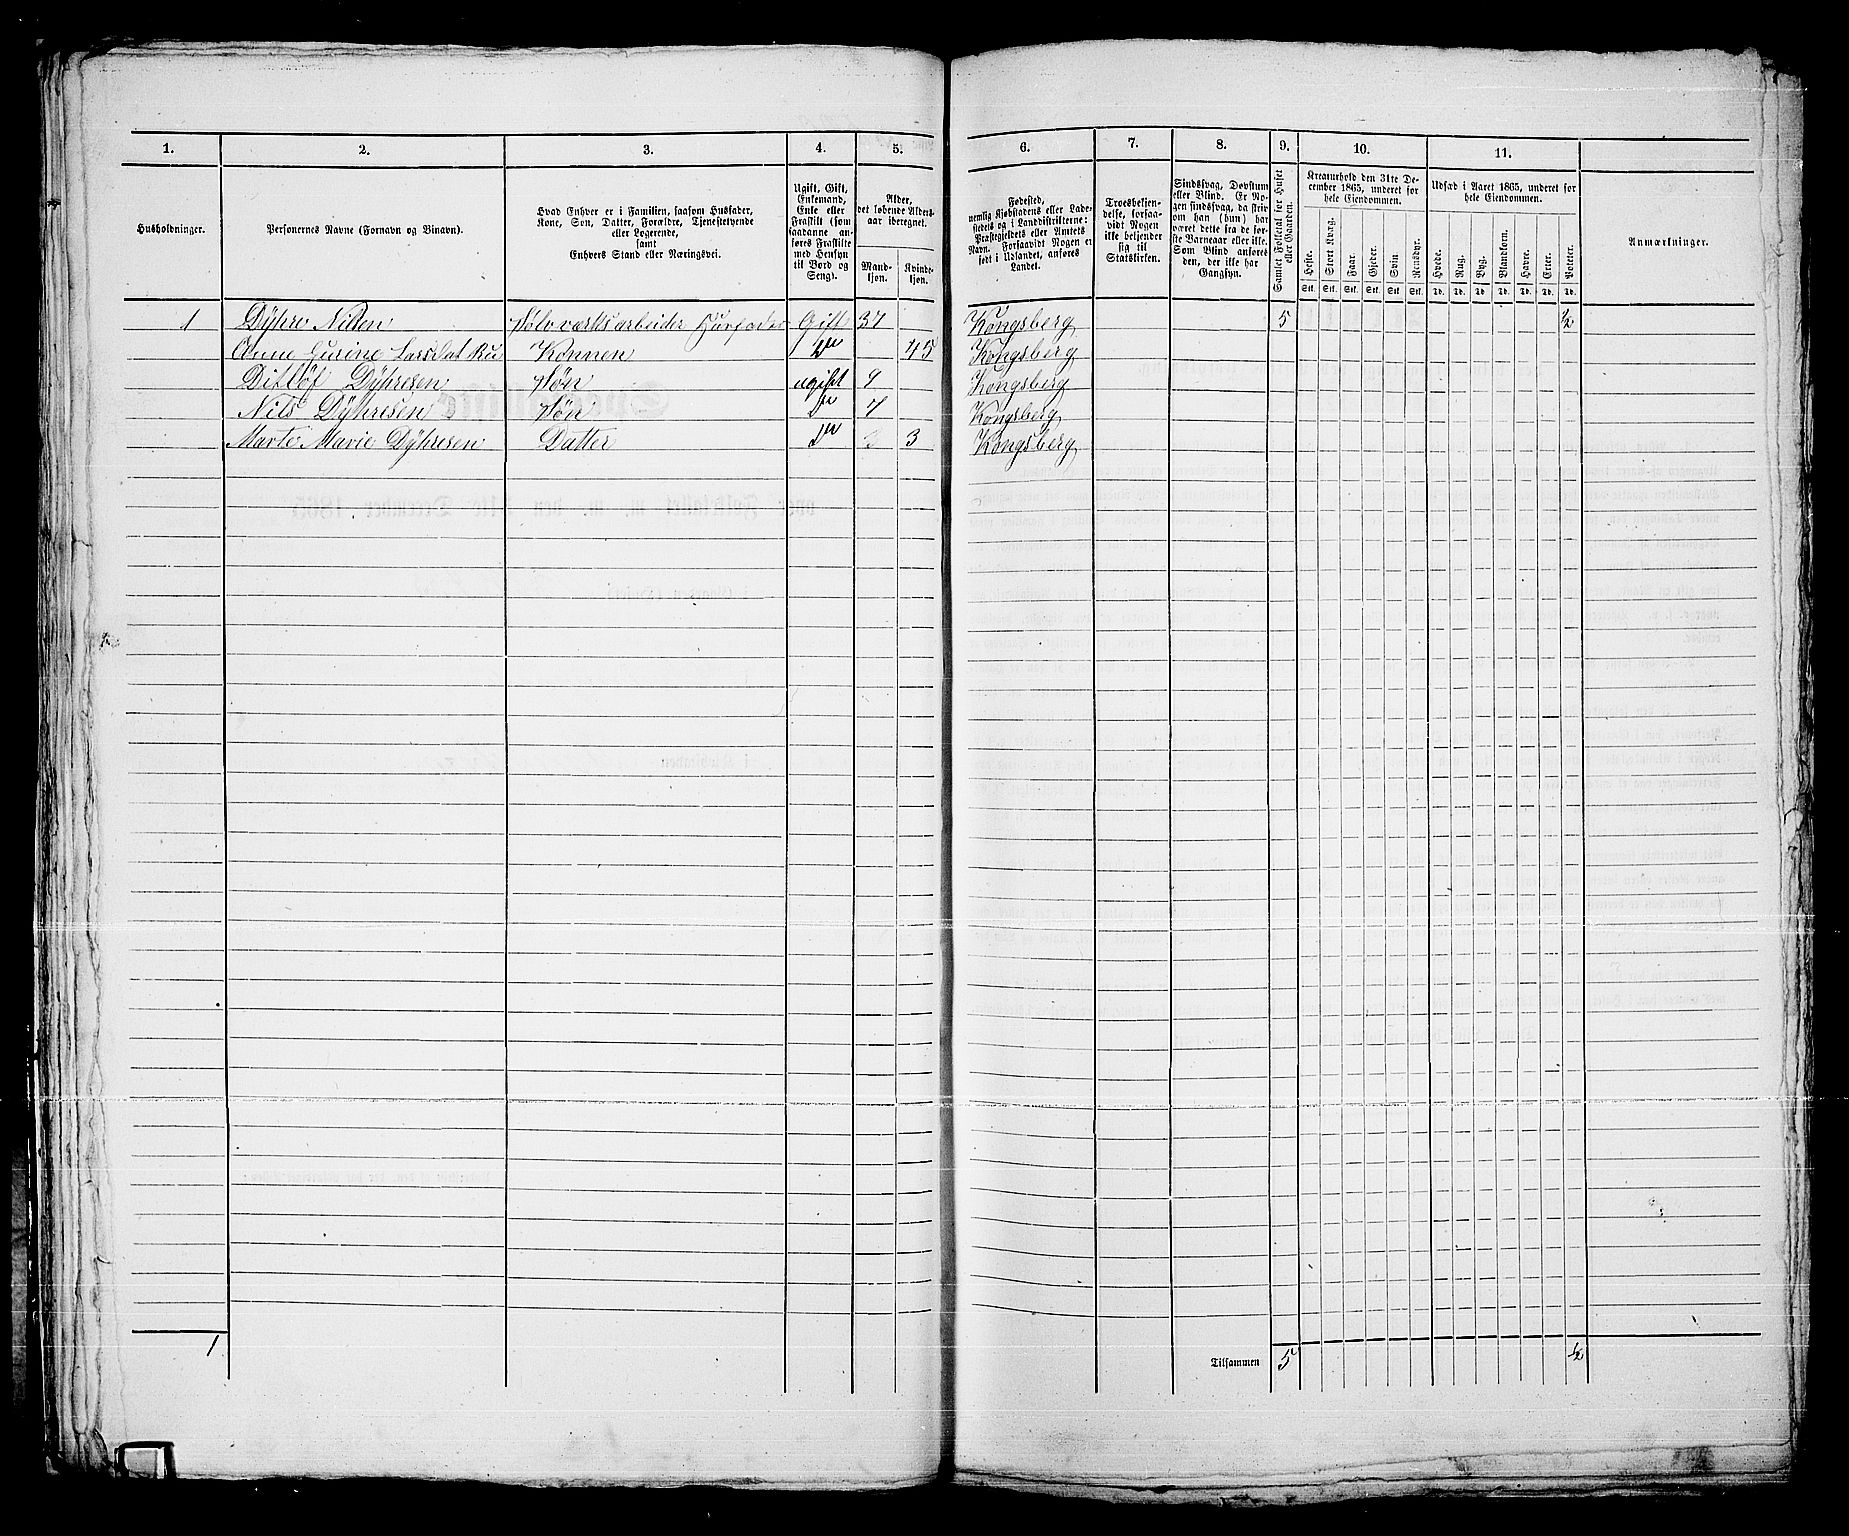 1. 2. 3. 4. 5. 6. 7. 8. 9. 10. 11.
Husholdninger.
Personernes Navne (Fornavn og Binavn).
Hvad Enhver er i Familien, saasom Husfader,
Kone, Søn, Datter, Forældre, Tjenestetyende
eller Logerende,
samt
Enhvers Stand eller Næringsvei.
Ugift, Gift,
Enkemand,
Enke eller
Fraskilt (som
saadanne an-
føres Fraskilte
med Hensyn
til Bord og
Seng).
Alder,
det løbende Alders-
aar iberegnet.
Mand-
kjøn.
Kvinde-
kjøn.
Fødested,
nemlig Kjøbstadens eller Lade-
stedets og i Landdistrikterne:
Præstegjeldets eller Amtets
Navn. Forsaavidt Nogen er
født i Udlandet, anføres
Landet.
Troesbekjen-
delse, forsaa-
vidt Nogen
ikke bekjender
sig til
Statskirken.
Sindssvag, Døvstum
eller Blind. Er No-
gen sindssvag, da skriv
om han (hun) har
været dette fra de før-
ste Barneaar eller ikke.
Som Blind anføres
den, der ikke har
Gangsyn.
Samlet Folketal for Huset
eller Gaarden.
Kreaturhold den 31te De-
cember 1865, underet for
hele Eiendommen.
Heste. Stort Kvæg. Faar. Gjeder. Svin Rensdyr.
Stk. Stk. Stk. Stk. Stk. Stk.
Udsæd i Aaret 1865, underet for
hele Eiendommen.
Hvede. Rug. Byg. Blandkorn. Havre. Erter. Poteter.
Td. Td. Td. Td. Td. Td. Td.
Anmærkninger.
1 Dÿhre Nilsen Sølvværksarbeider Husfader Gift 37 Kongsberg 5 ½
Anne Gurine Larsdat Ru Konnen Do 45 Kongsberg
Ditløf Dÿhresen Søn ugift 9 Kongsberg
Nils Dÿhresen Søn Do 7 Kongsberg
Marte Marie Dÿhresen Datter Do 3 Kongsberg
1 Tilsammen 5 ½